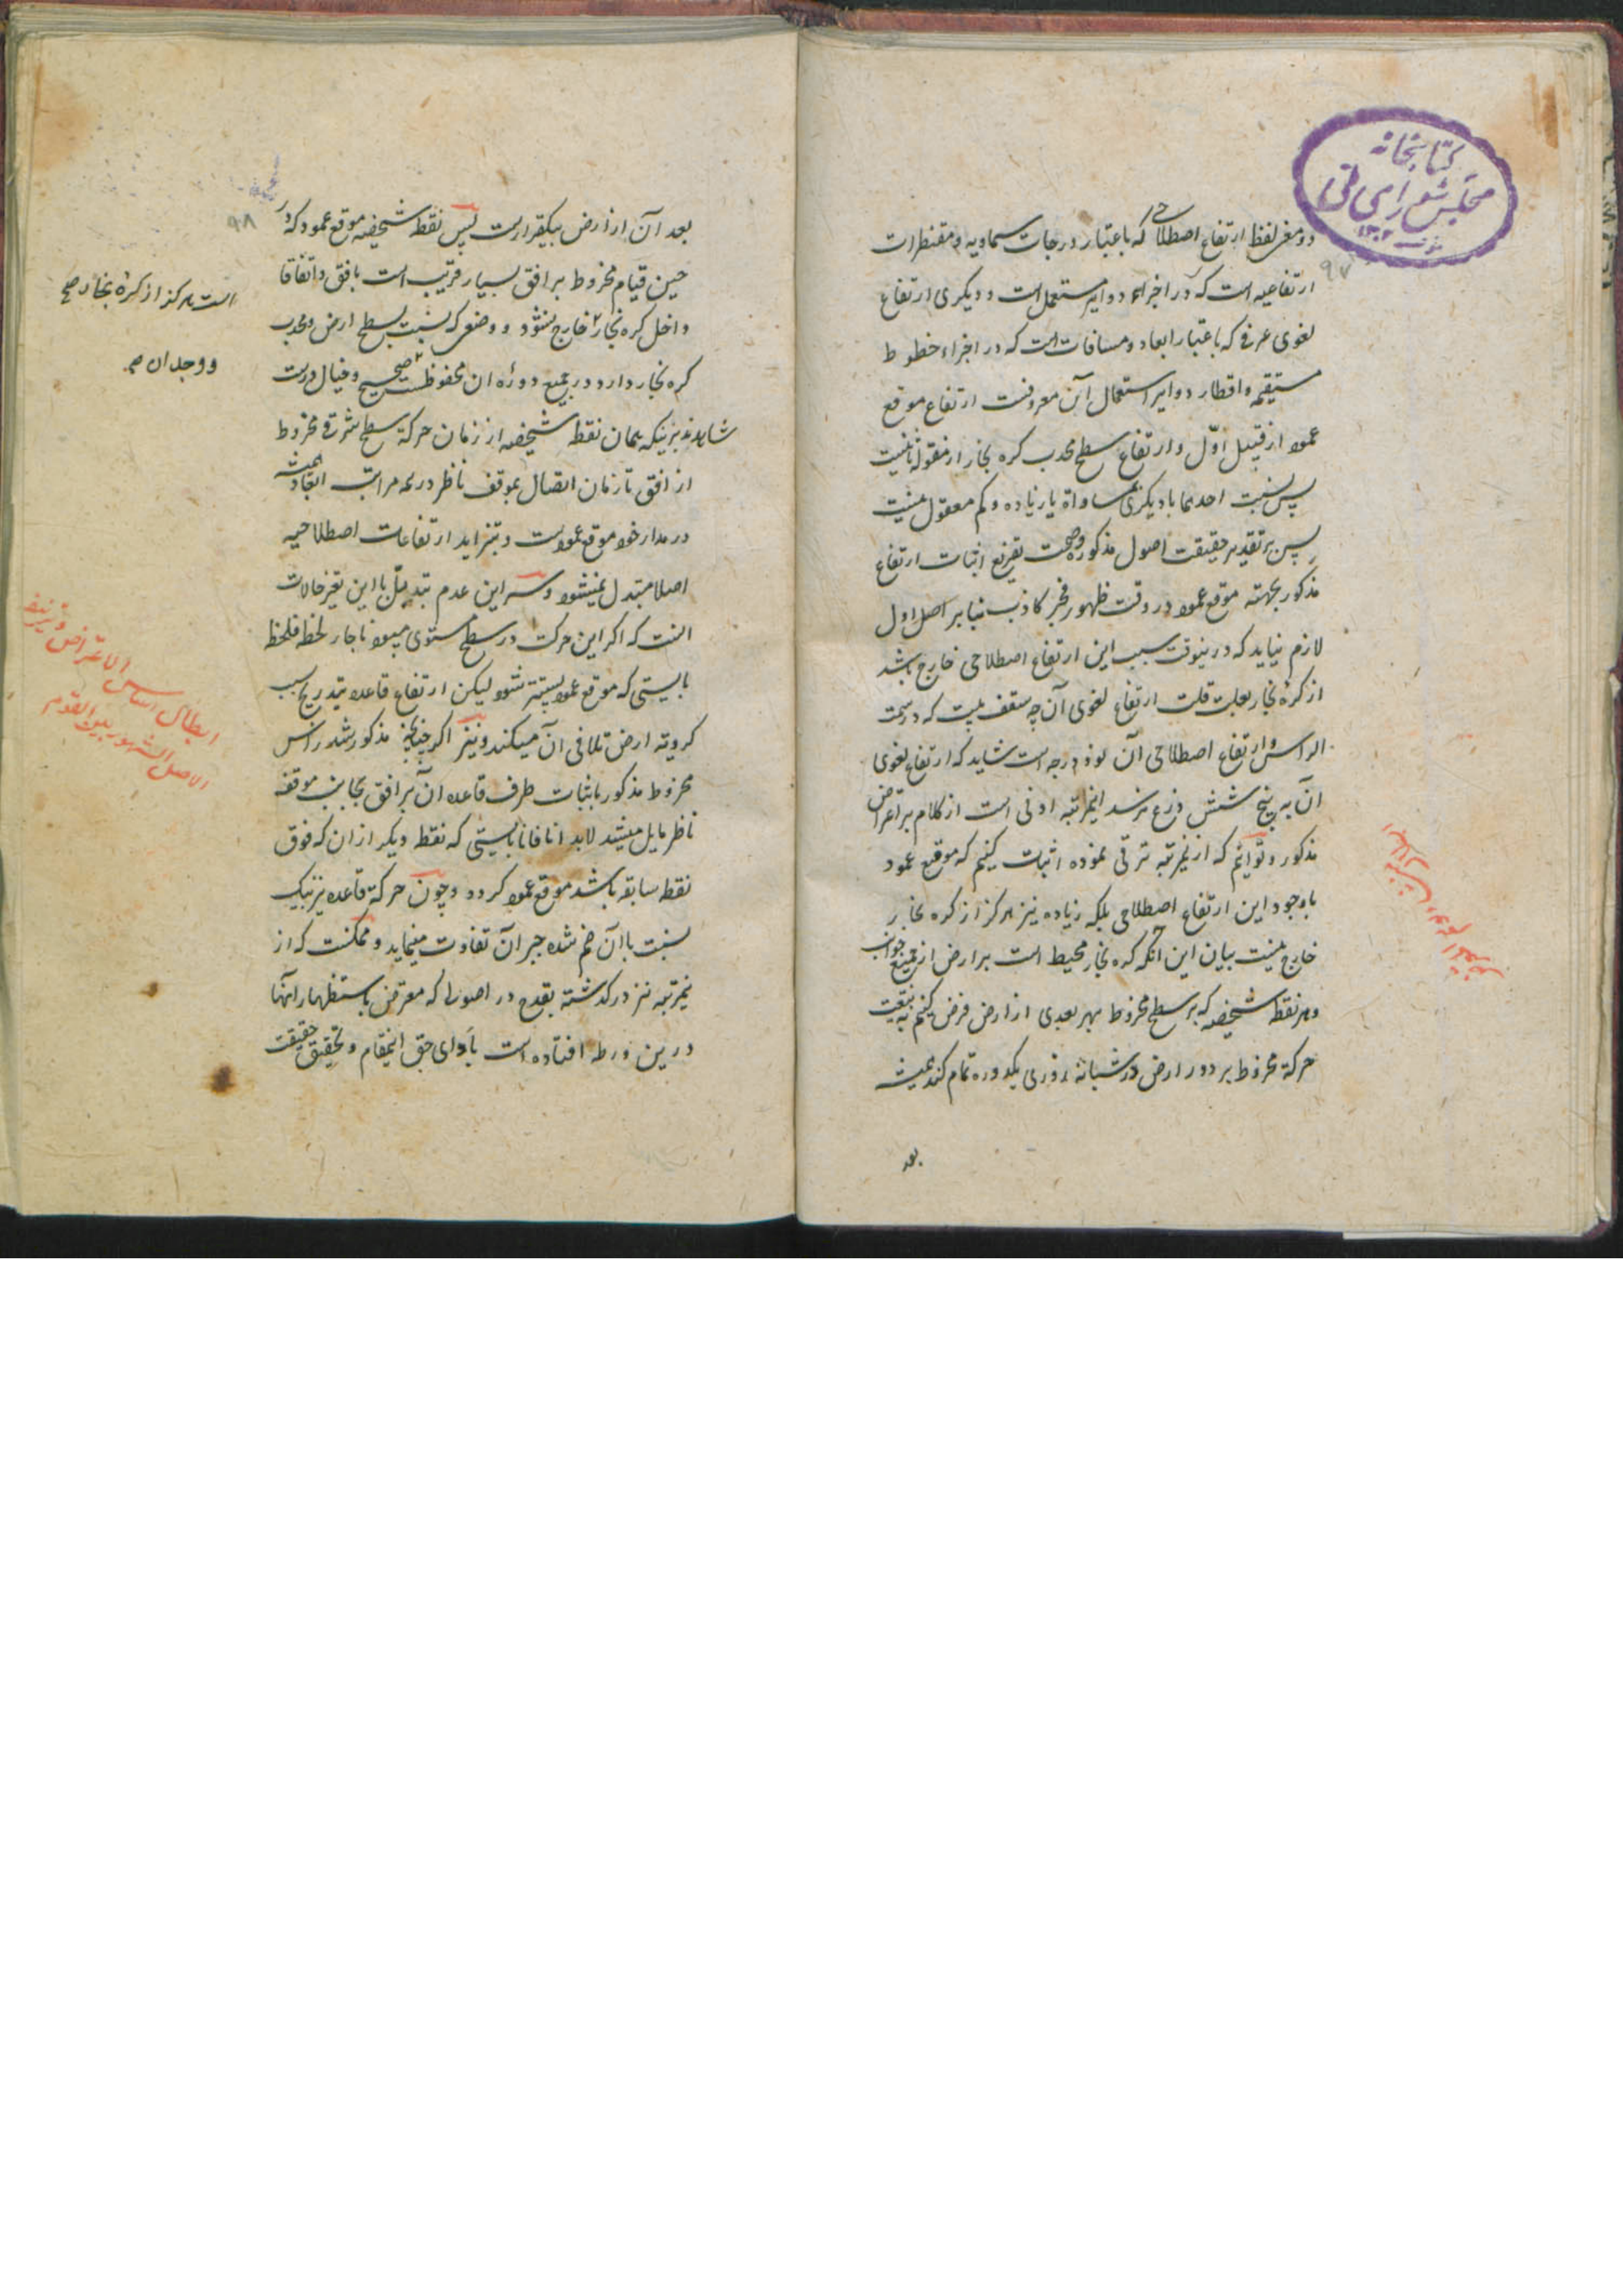 کتابخانه
مجلس شورای ملی
۹۷
دو معنی لفظ ارتفاع اصطلاحی که باعتبار درجات سماویه و مقنطرات
ارتفاعیه است که در اجزاء دوایر مستعمل است و دیکری ارتفاع
لغوی عرفی که باعتبار ابعاد و مسافات است که در اجزاء خطوط
مستقیمه و اقطار دوایر استعمال آن معروفست ارتفاع موقع
عمود از قبیل اوّل و ارتفاع سطح محدب کره بخار از مقوله ثانیست
پس نسبت احدهما با دیکری بمساواة یا زیاده و کم معقول نیست
پس بر تقدیر حقیقت اصول مذکوره و صحت تفریع اثبات ارتفاع
مذکور بجهته موقع عمود در وقت ظهور فجر کاذب بنا بر اصل اول
لازم نیاید که درینوقت سبب این ارتفاع اصطلاحی خارج باشد
از کرهٔ بخار بعلت قلت ارتفاع لغوی آن چه سقف بیت که در سمت
الراس و ارتفاع اصطلاحی آن نود درجه است شاید که ارتفاع لغوی
ان به پنج شش ذرع نرسد اینمرتبه ادنی است از کلام بر اعتراض
مذکور و توانیم که ازینمرتبه ترقی نموده اثبات کنیم که موقع عمود
باوجود این ارتفاع اصطلاحی بلکه زیاده نیز هرکز از کره بخار
خارج نیست بیان این آنکه کره بخار محیط است بر ارض از جمیع جوانب
و هر نقطه شخصیه که بر سطح مخروط بهر بعدی از ارض فرض کنیم به تبعیت
حرکة مخروط بر دور ارض در شبانه روزی یکدوره تمام کند همیشه
بعد
۹۸
بعد آن از ارض بیکقرارست پس نقطه شخصیه موقع عمود که در
حین قیام مخروط بر افق بسیار قریب است بافق و اتفاقا
داخل کره بخار خارج نشود و وضعی که نسبت بسطح ارض و محدب
کره بخار دارد در جمیع دوره ان محفوظست صحیح و خیال درست
شاهدند برینکه همان نقطه شخصیه از زمان حرکة سطح شرقی مخروط
از افق تا زمان اتصال بموقف ناظر در همه مراتب همیشه
در مدار خود موقع عمودست و بتزاید ارتفاعات اصطلاحیه
اصلا متبدل نمیشود و سر این عدم تبدل با این تغیر حالات
انست که اکر این حرکت در سطح مستوی میبود ناچار لحظه فلحظه
بایستی که موقع عمود پستتر شود لیکن ارتفاع قاعده بتدریج بسبب
کرویة ارض تلافی آن میکند و نیز اکر چنانچه مذکور شد راس
مخروط مذکور باثبات طرف قاعده آن بر افق بجانب موقف
ناظر مایل میشد لابد انا فانا بایستی که نقطه دیکر از ان که فوق
نقطه سابقه باشد موقع عمود کردد و چون حرکة قاعده نیز بیک
نسبت با آن ضم شده جبر آن تفاوت مینماید و ممکنست که از
ینمرتبه نیز درکذشته بقدح در اصولی که معترض باستظهار انها
درین ورطه افتاده است بادای حق اینمقام و تحقیق حقیقت
است هرکز از کرهٔ بخار صح
و وجدان صح
ابطال اساس الاعتراض و تزییف
الاصل المشهور بین القوم